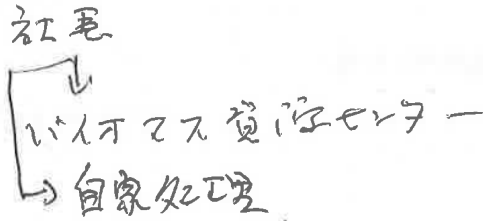 バイオマス資源センター
自家処理